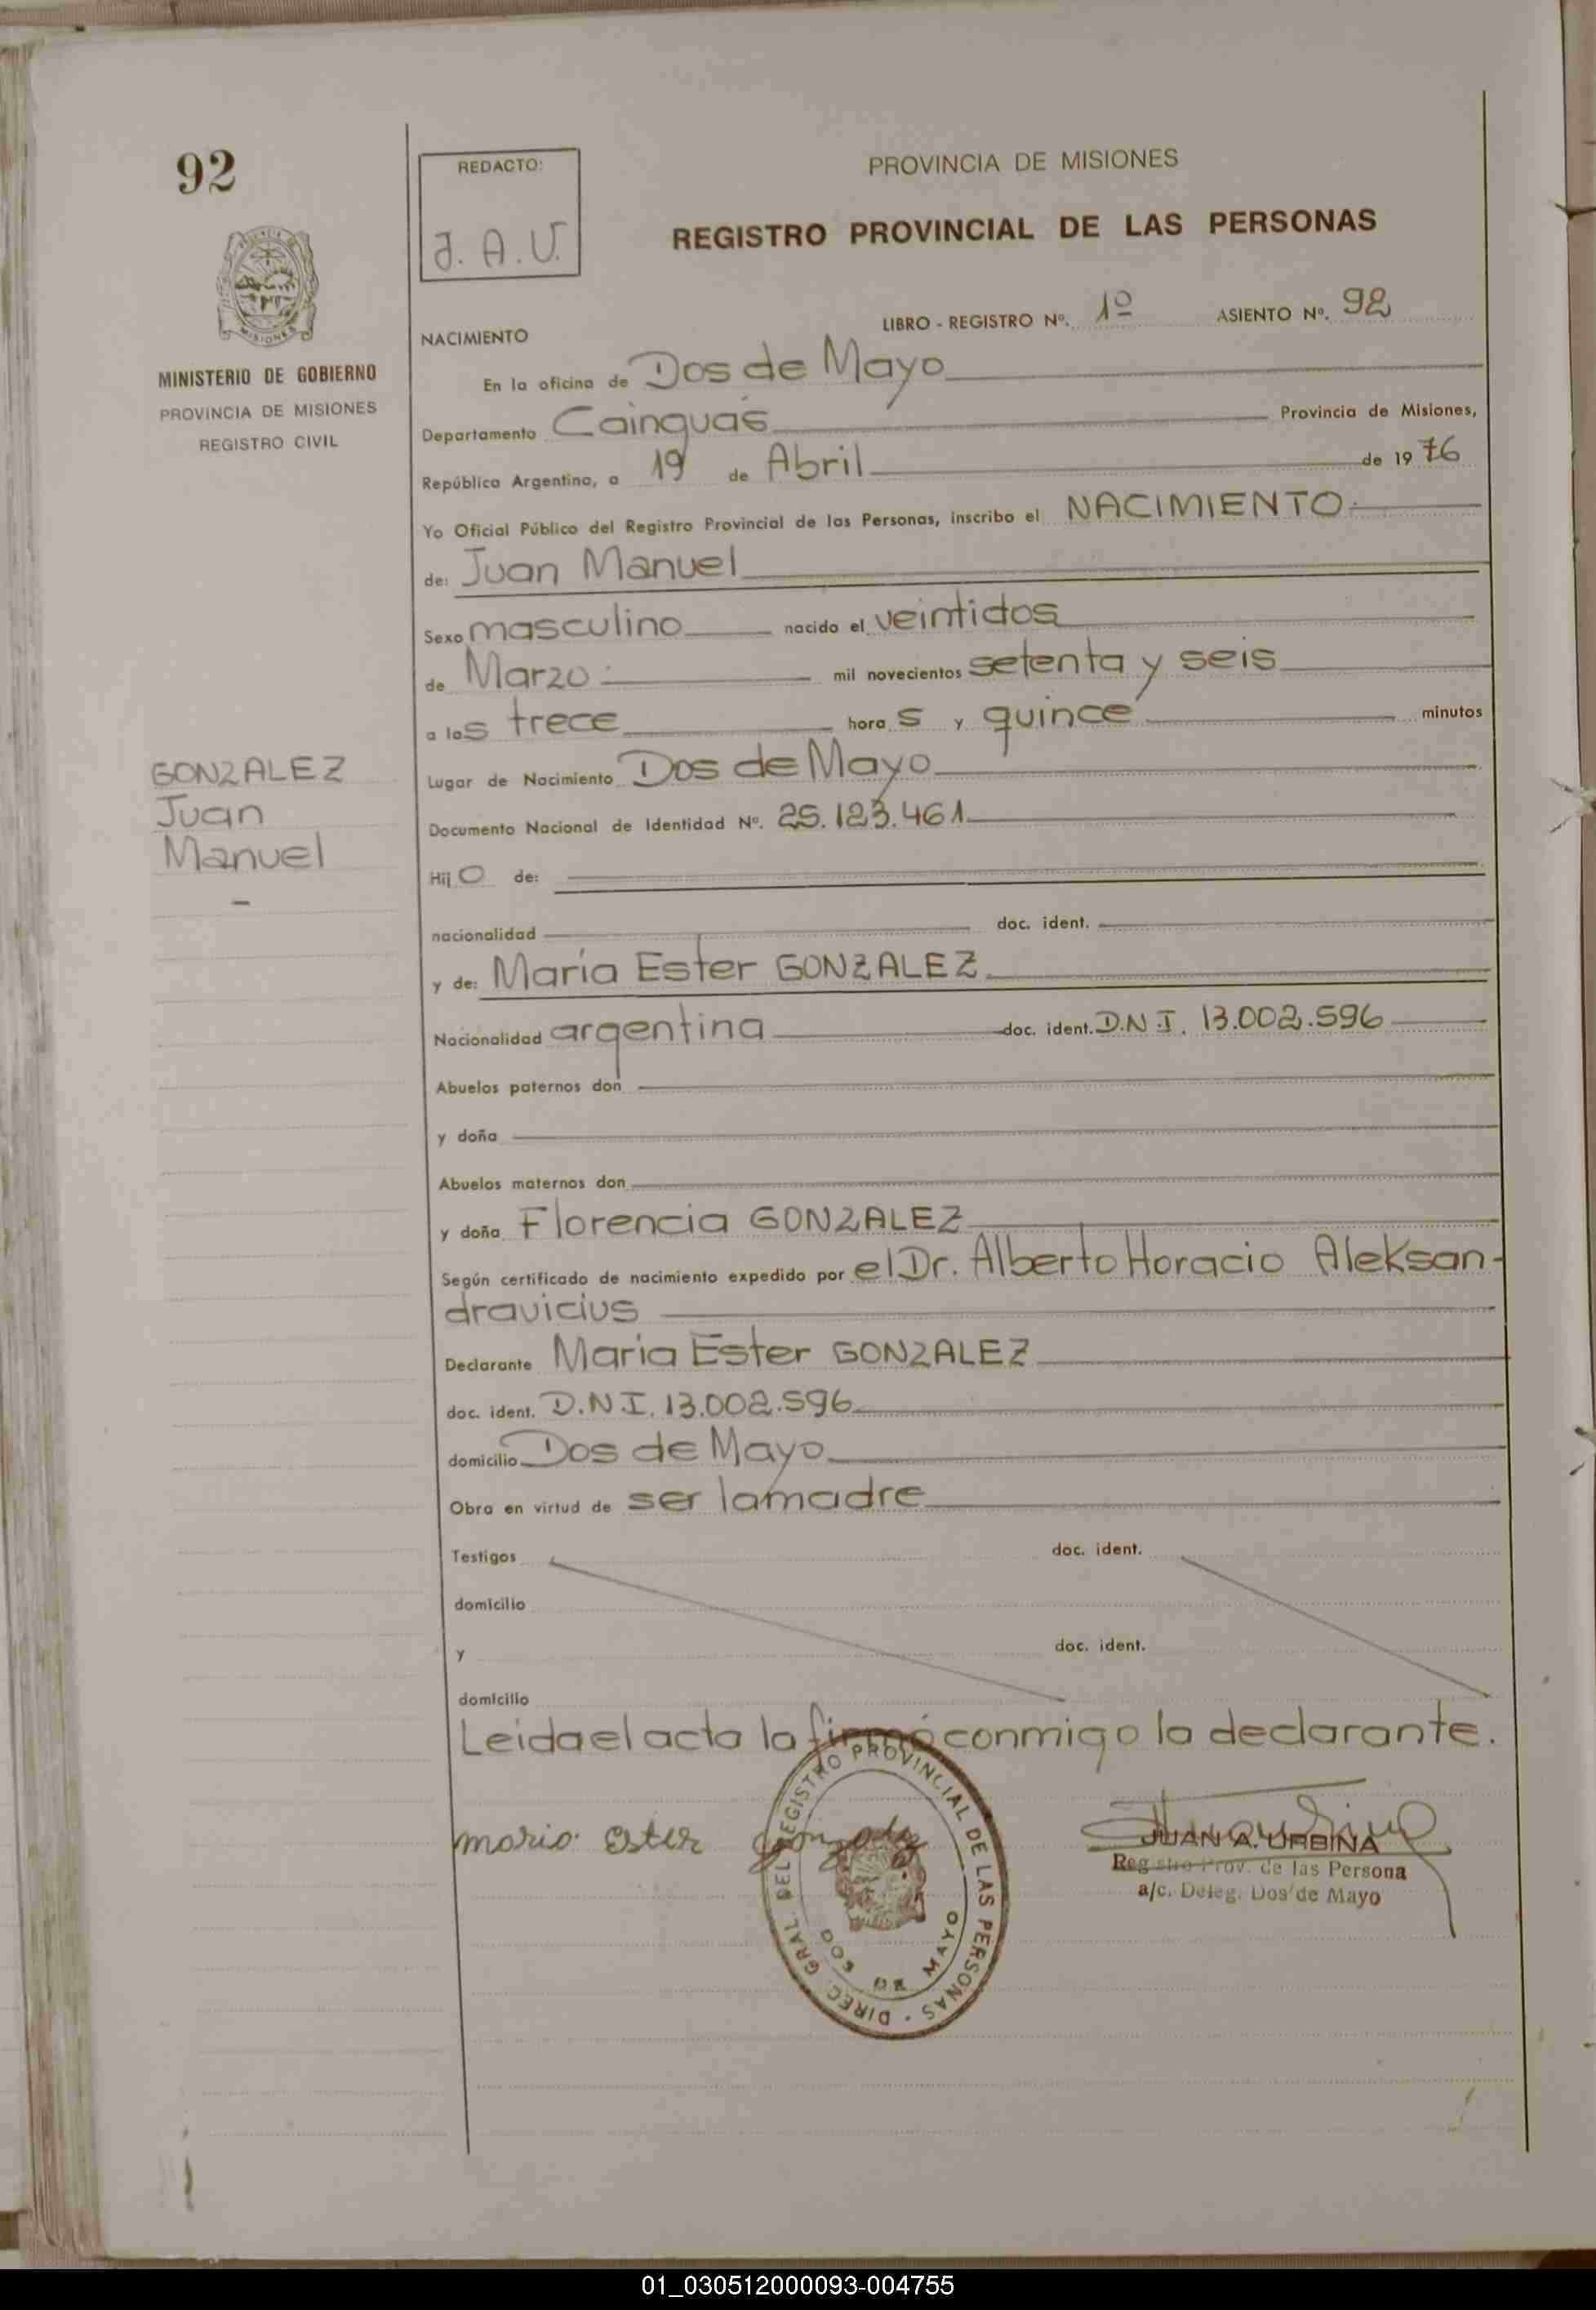 92
REDACTO:
J. A. U.
PROVINCIA DE MISIONES
REGISTRO PROVINCIAL DE LAS PERSONAS
MISIONES
MINISTERIO DE GOBIERNO
PROVINCIA DE MISIONES
REGISTRO CIVIL
LIBRO - REGISTRO Nº. 1º ASIENTO Nº. 92
NACIMIENTO
En la oficina de Dos de Mayo
Departamento Cainguás Provincia de Misiones,
República Argentina, a 19 de Abril de 1976
Yo Oficial Público del Registro Provincial de las Personas, inscribo el NACIMIENTO
de: Juan Manuel
Sexo masculino nacido el veintidos
de Marzo mil novecientos setenta y seis
a las trece horas y quince minutos
GONZALEZ
Juan
Manuel
Lugar de Nacimiento Dos de Mayo
Documento Nacional de Identidad Nº. 25.123.461
Hijo de:
nacionalidad doc. ident.
y de: María Ester GONZALEZ
Nacionalidad argentina doc. ident. D.N.I. 13.002.596
Abuelos paternos don
y doña
Abuelos maternos don
y doña Florencia GONZALEZ
Según certificado de nacimiento expedido por el Dr. Alberto Horacio Aleksan-
dravicius
Declarante Maria Ester GONZALEZ
doc. ident. D.N.I. 13.002.596
domicilio Dos de Mayo
Obra en virtud de ser la madre
Testigos doc. ident.
domicilio
y doc. ident.
domicilio
Leida el acta la firmó conmigo la declarante.
maria Ester gonzalez
DIREC. GRAL. DEL REGISTRO PROVINCIAL DE LAS PERSONAS -
DOS DE MAYO
JUAN A. URBINA
Registro Prov. de las Persona
a/c. Deleg. Dos de Mayo
01_030512000093-004755